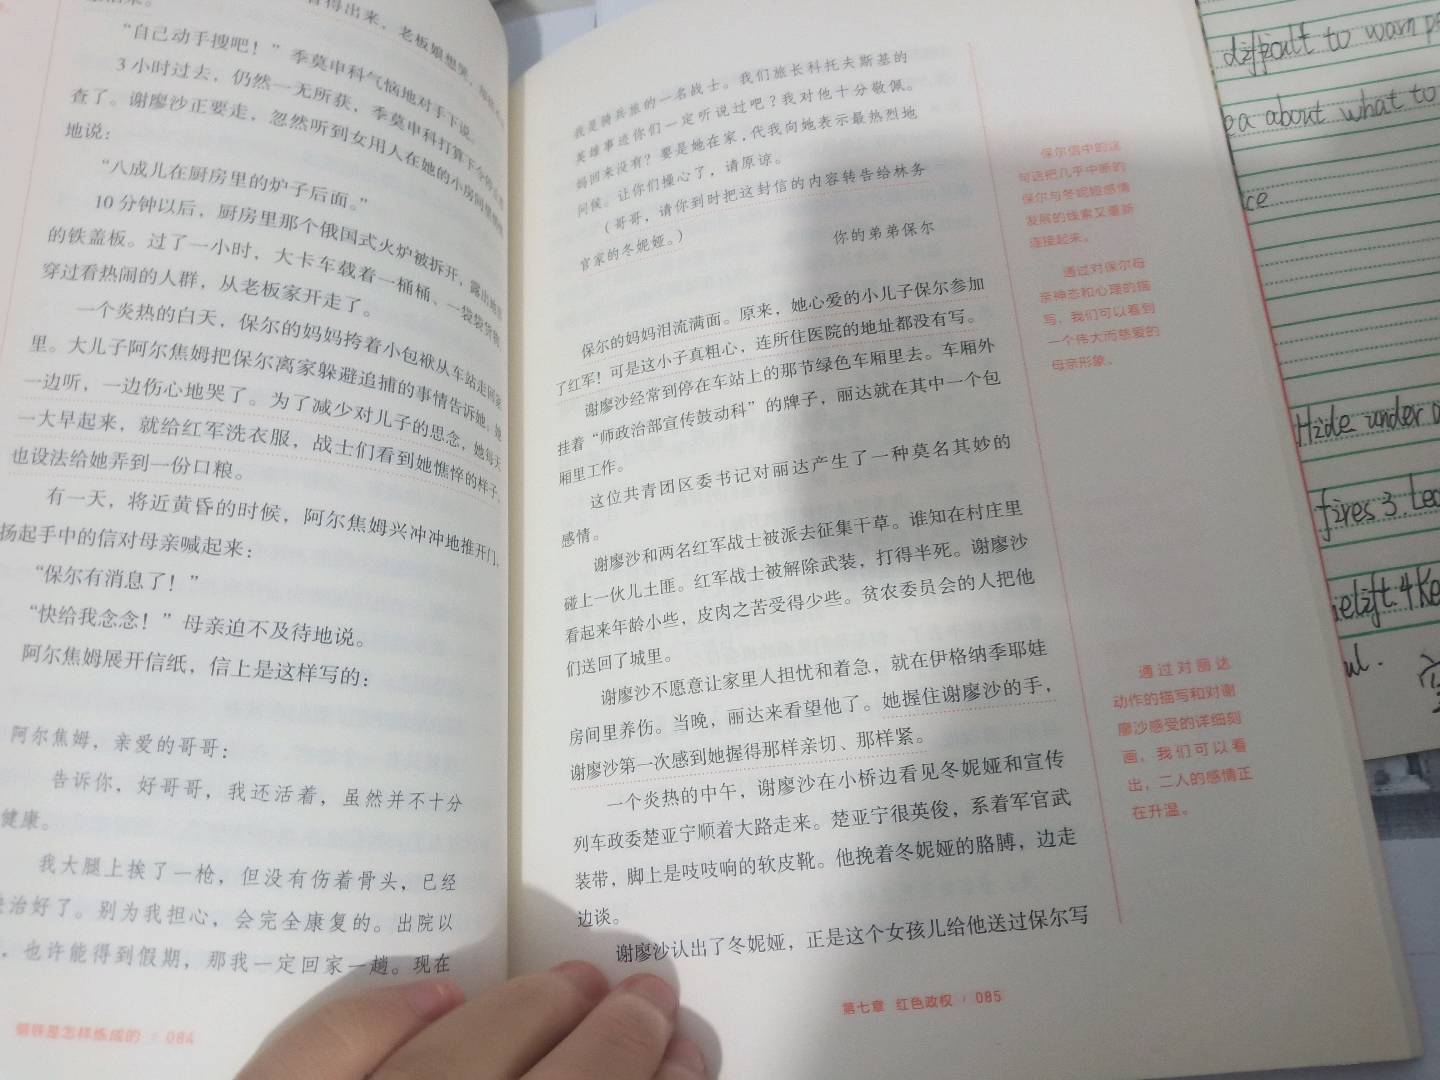 看得出来，老板娘想哭，
“自己动手搜吧！”季莫申科气恼地对手下说。
3小时过去，仍然一无所获，季莫申科打算下令停止
查了。谢廖沙正要走，忽然听到女用人在她的小房间里悄悄
地说：
“八成儿在厨房里的炉子后面。”
10分钟以后，厨房里那个俄国式火炉被拆开，露出
的铁盖板。过了一小时，大卡车载着一桶桶、一袋袋货物，
穿过看热闹的人群，从老板家开走了。
一个炎热的白天，保尔的妈妈挎着小包袱从车站走回家
里。大儿子阿尔焦姆把保尔离家躲避追捕的事情告诉她，她
一边听，一边伤心地哭了。为了减少对儿子的思念，她每天
一大早起来，就给红军洗衣服，战士们看到她憔悴的样子，
也设法给她弄到一份口粮。
有一天，将近黄昏的时候，阿尔焦姆兴冲冲地推开门，
扬起手中的信对母亲喊起来：
“保尔有消息了！”
“快给我念念！”母亲迫不及待地说。
阿尔焦姆展开信纸，信上是这样写的：
阿尔焦姆，亲爱的哥哥：
告诉你，好哥哥，我还活着，虽然并不十分
健康。
我大腿上挨了一枪，但没有伤着骨头，已经
治好了。别为我担心，会完全康复的。出院以
，也许能得到假期，那我一定回家一趟。现在
钢铁是怎样炼成的 / 084
我是骑兵旅的一名战士。我们旅长科托夫斯基的
英雄事迹你们一定听说过吧？我对他十分敬佩。
妈回来没有？要是她在家，代我向她表示最热烈地
问候。让你们操心了，请原谅。
（哥哥，请你到时把这封信的内容转告给林务
官家的冬妮娅。）
你的弟弟保尔
保尔的妈妈泪流满面。原来，她心爱的小儿子保尔参加
了红军！可是这小子真粗心，连所住医院的地址都没有写。
谢廖沙经常到停在车站上的那节绿色车厢里去。车厢外
挂着“师政治部宣传鼓动科”的牌子，丽达就在其中一个包
厢里工作。
这位共青团区委书记对丽达产生了一种莫名其妙的
感情。
谢廖沙和两名红军战士被派去征集干草。谁知在村庄里
碰上一伙儿土匪。红军战士被解除武装，打得半死。谢廖沙
看起来年龄小些，皮肉之苦受得少些。贫农委员会的人把他
们送回了城里。
谢廖沙不愿意让家里人担忧和着急，就在伊格纳季耶娃
房间里养伤。当晚，丽达来看望他了。她握住谢廖沙的手，
谢廖沙第一次感到她握得那样亲切、那样紧。
一个炎热的中午，谢廖沙在小桥边看见冬妮娅和宣传
列车政委楚亚宁顺着大路走来。楚亚宁很英俊，系着军官武
装带，脚上是吱吱响的软皮靴。他挽着冬妮娅的胳膊，边走
边谈。
谢廖沙认出了冬妮娅，正是这个女孩儿给他送过保尔写
第七章 红色政权 / 085
保尔信中的这
句话把几乎中断的
保尔与冬妮娅感情
发展的线索又重新
连接起来。
通过对保尔母
亲神态和心理的描
写，我们可以看到
一个伟大而慈爱的
母亲形象。
通过对丽达
动作的描写和对谢
廖沙感受的详细刻
画，我们可以看
出，二人的感情正
在升温。
difficult to warn
about what to
ce
Hide under
fires 3.
4